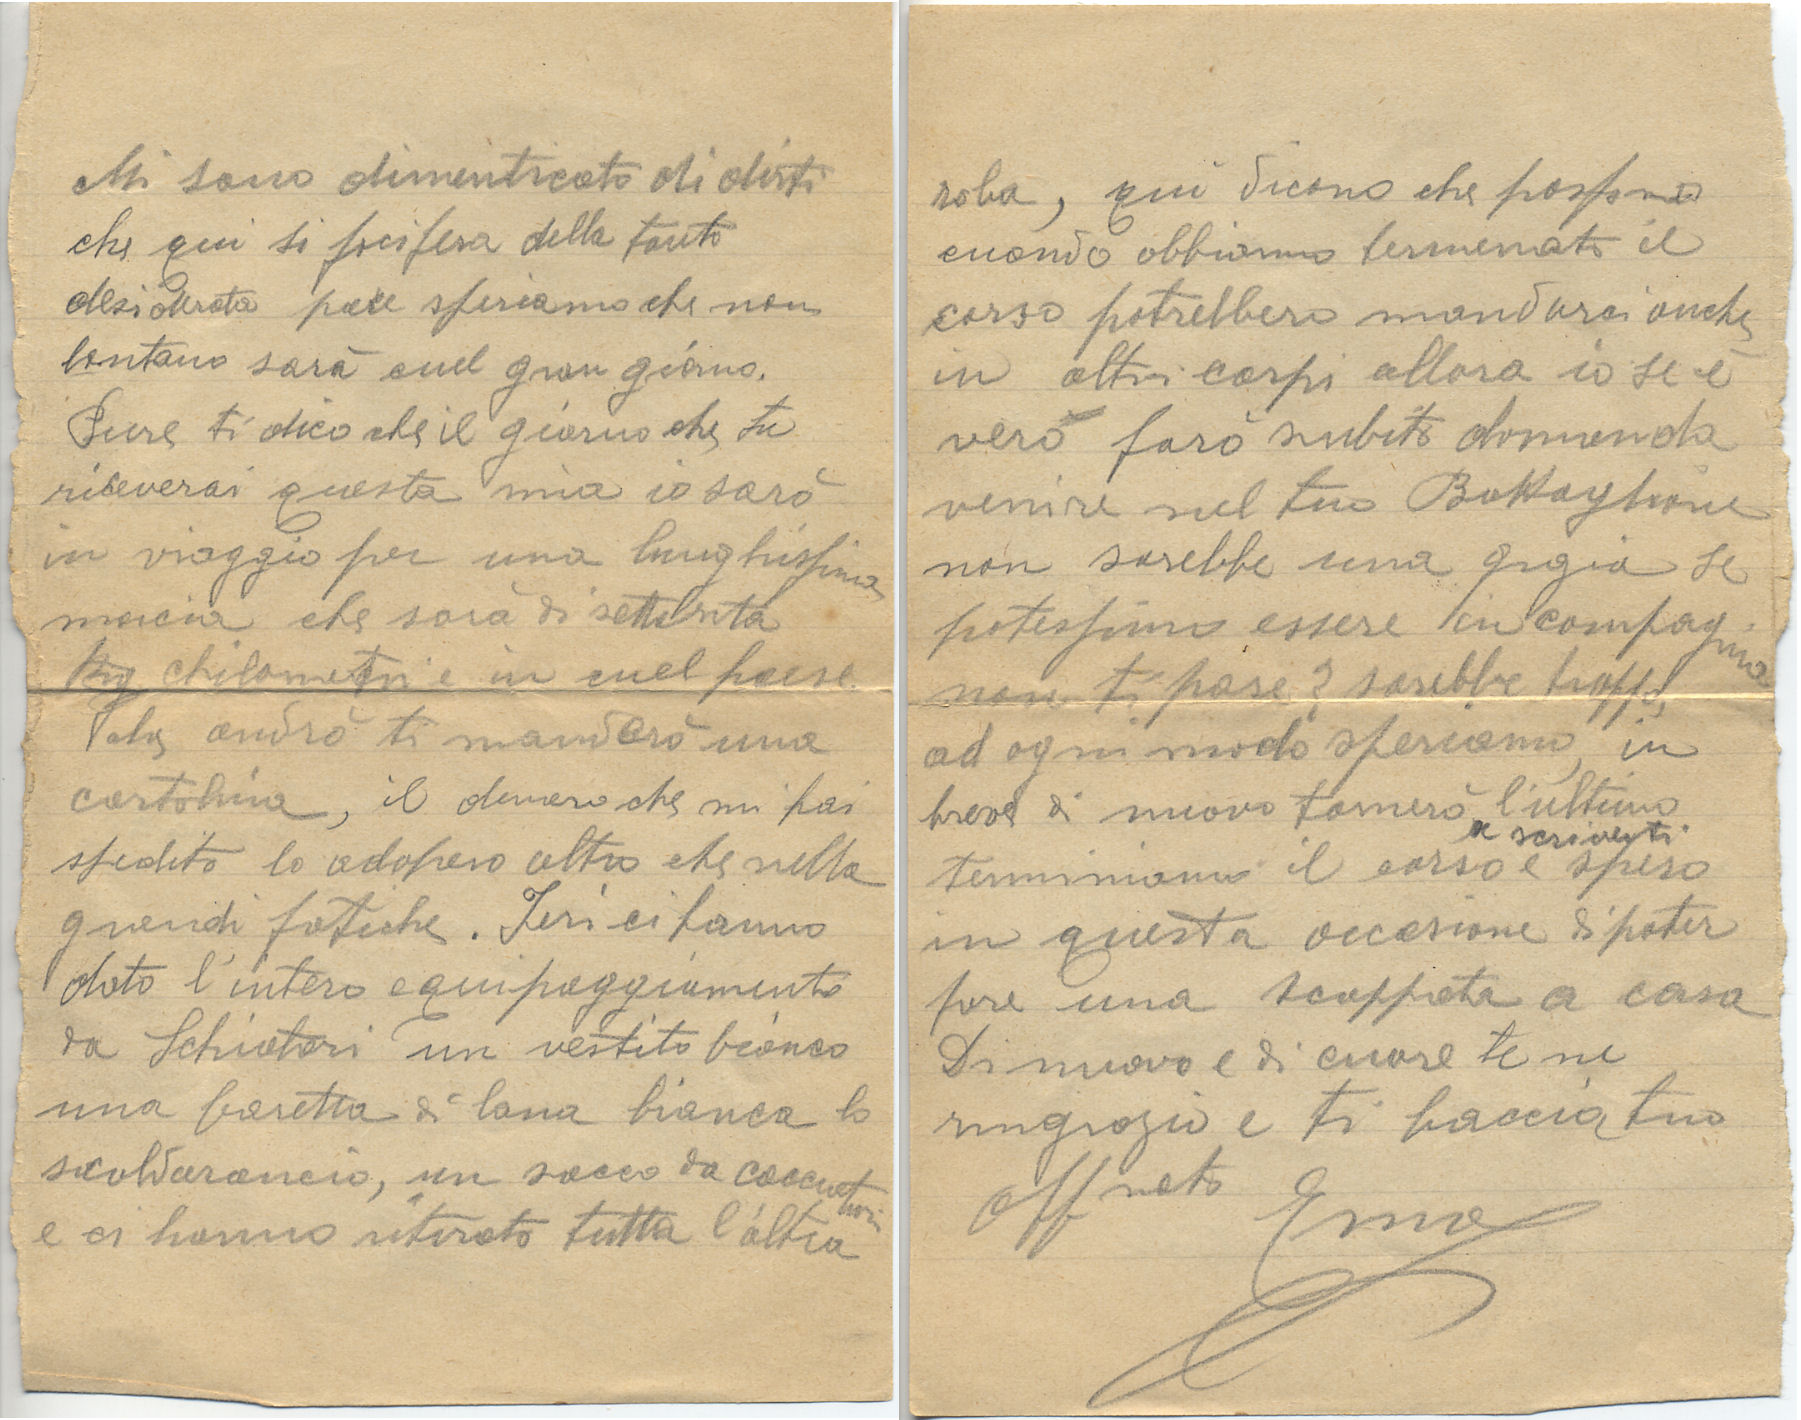 Mi sono dimenticato di dirti
che qui si focifera della tanto
desiderata pace speriamo che non
lontano sarà cuel gran giorno.
Pure ti dico che il giorno che tu
riceverai questa mia io sarò
in viaggio per una lunghissima
marcia che sarà di settanta
chilometri e in cuel paese
che andrò ti manderò una
cartolina, il denaro che mi hai
spedito lo adopero altro che nella
grandi fatiche. Ieri ci hanno
dato l'intero equipaggiamento
da Schiatori un vestito bianco
una baretta di lana bianca lo
scaldarancio, un sacco da caccuatori
e ci hanno ritirato tutta l'altra
roba, qui dicono che possono
cuando abbiamo termenato il
corso potrebbero mandarci anche
in altri corpi allora io se è
vero farò subito domanda
venire nel tuo Battaglione
non sarebbe una gogia se
potessimo essere in compagnia
non ti pare? sarebbe troppo,
ad ogni modo speriamo, in
breve di nuovo tornerò a scriverti l'ultimo
terminiamo il corso e spero
in questa occasione di poter
fare una scappata a casa
Di nuovo e di cuore te ne
ringrazio e ti baccia tuo
aff nato Erma